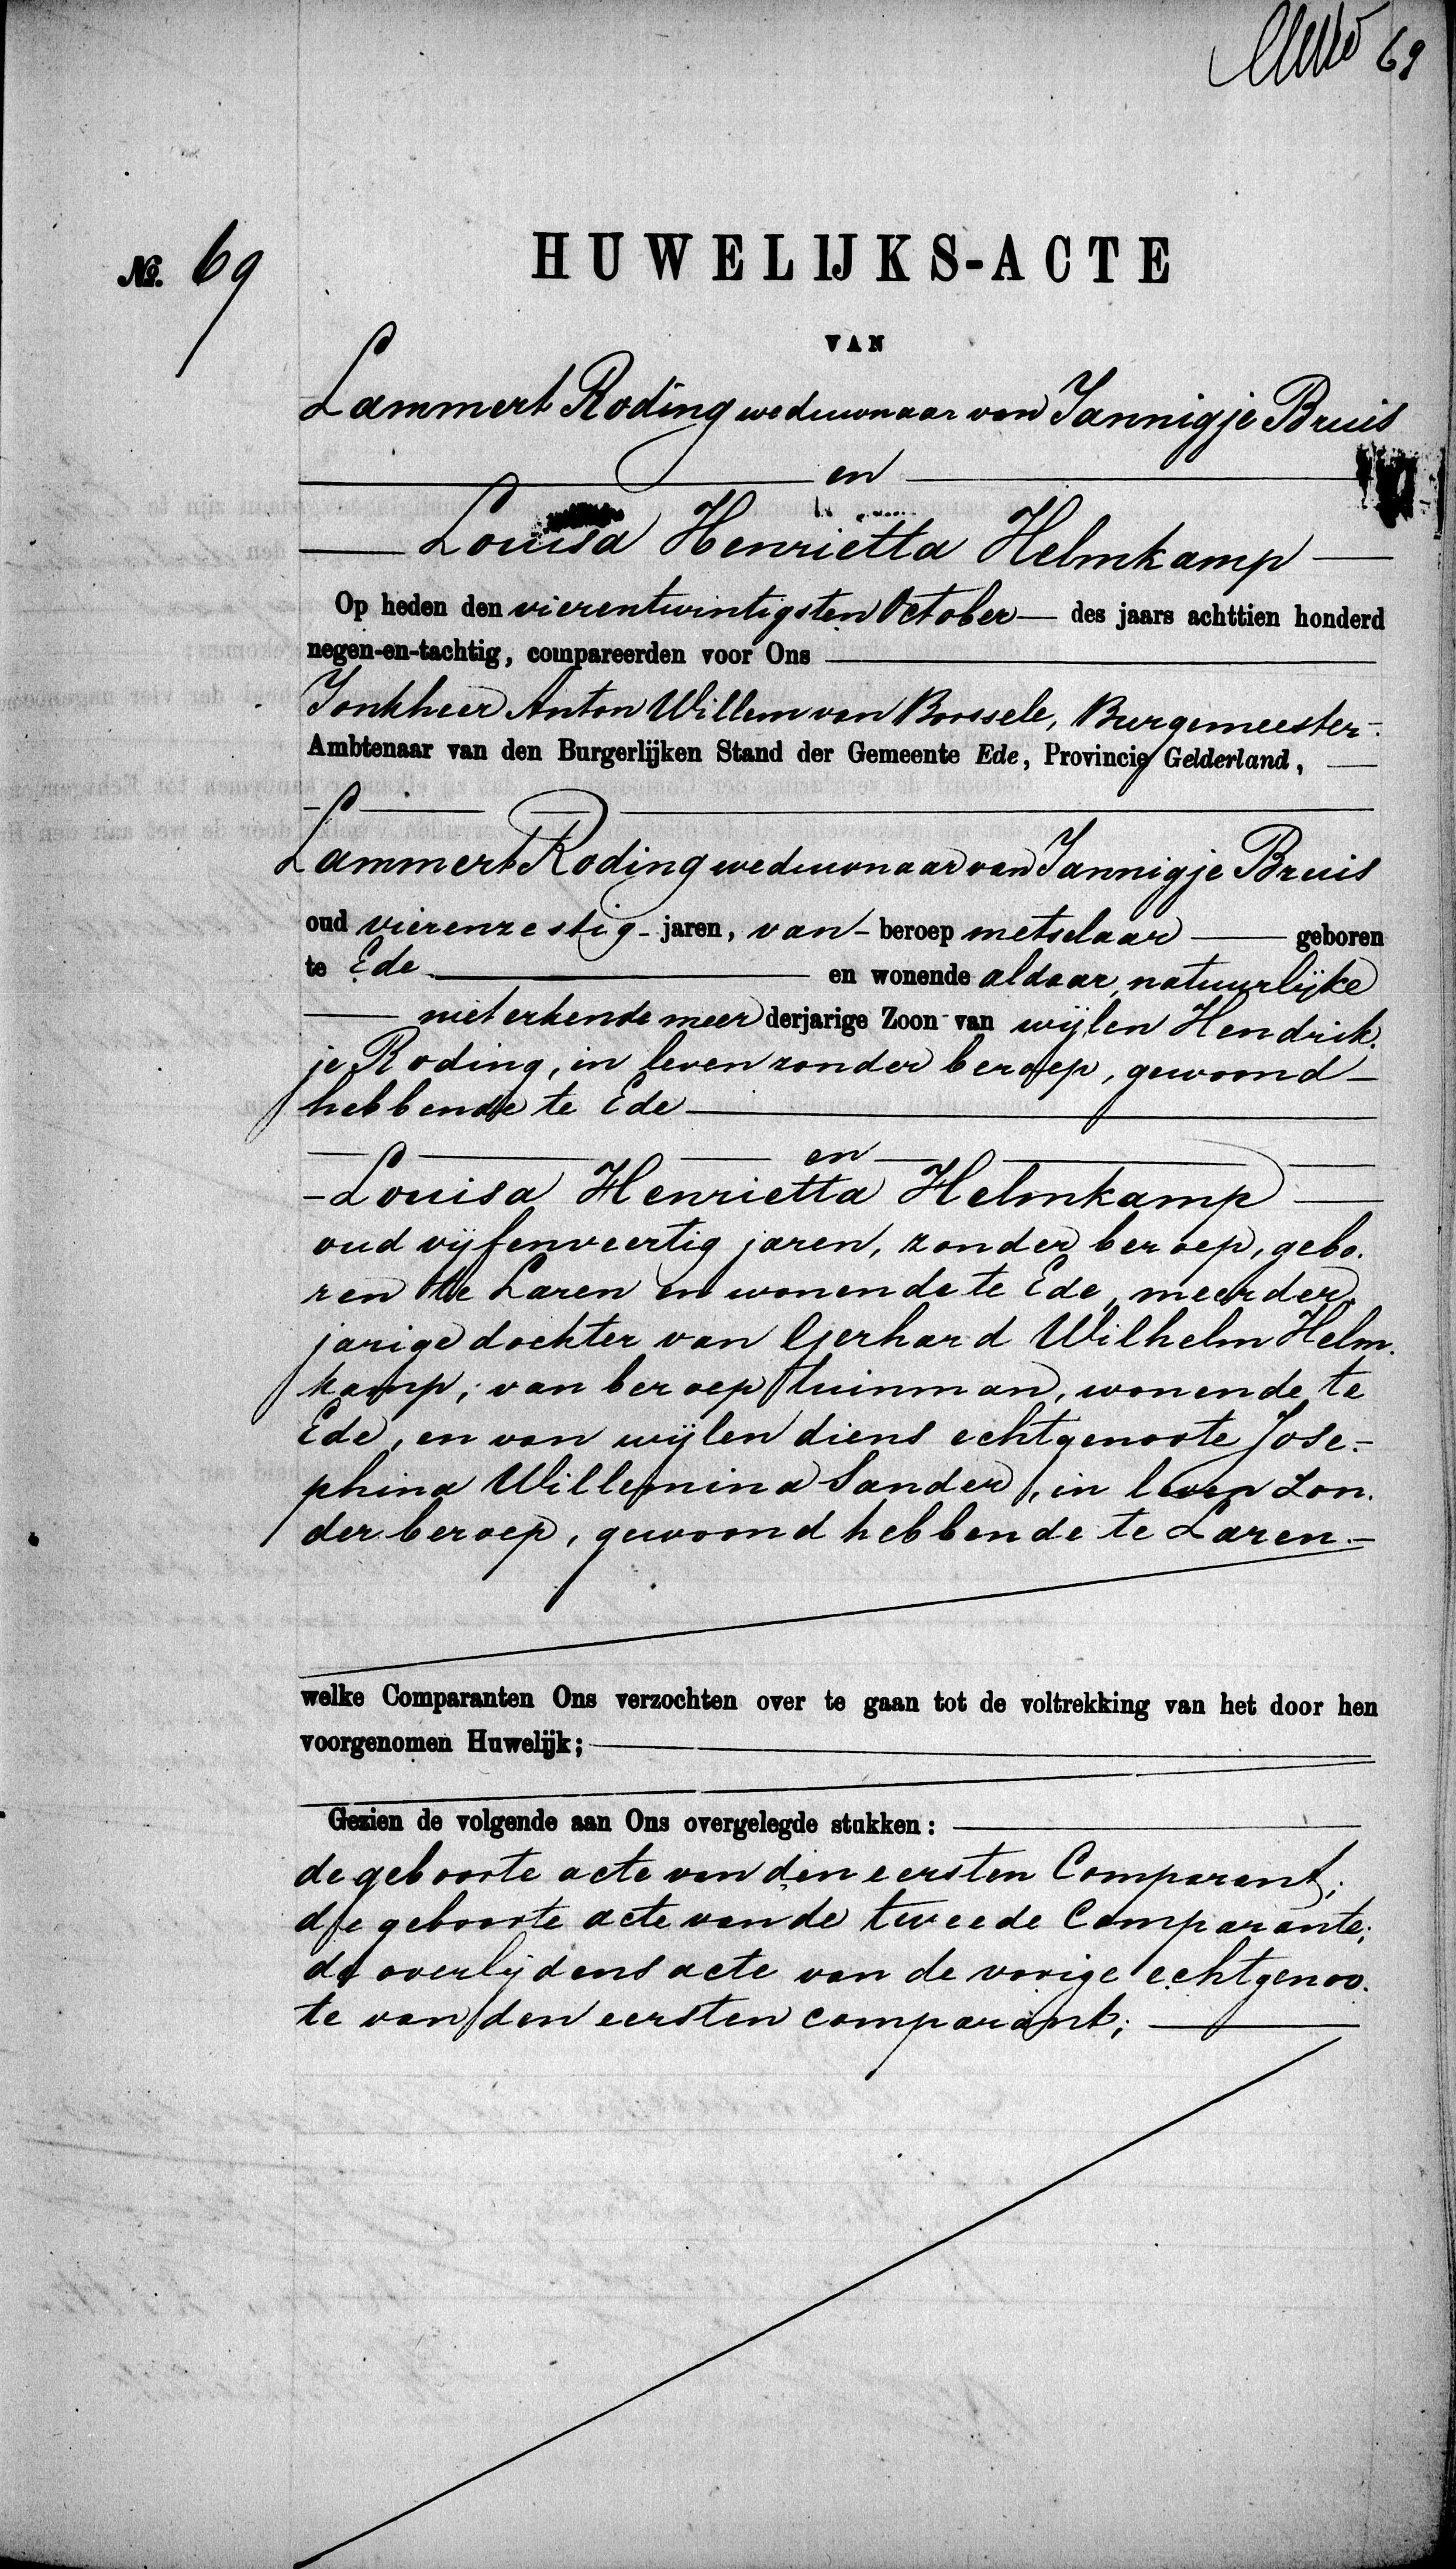 69
No. 69
HUWELIJKS-ACTE
VAN
Lammert Roding weduwnaar van Jannigje Bruis
en
Louisa Henrietta Helmkamp
Op heden den vierentwintigsten October des jaars achttien honderd
negen-en-tachtig, compareerden voor Ons
Jonkheer Anton Willem van Borssele, Burgemeester
Ambtenaar van den Burgerlijken Stand der Gemeente Ede, Provincie Gelderland,
Lammert Roding weduwnaar van Jannigje Bruis
oud vierenzestig jaren, van beroep metselaar geboren
te Ede en wonende aldaar, natuurlijke
niet erkende meerderjarige Zoon van wijlen Hendrik-
je Roding, in leven zonder beroep, gewoond
hebbende te Ede
en
Louisa Henrietta Helmkamp
oud vijfenveertig jaren, zonder beroep, gebo-
ren te Laren en wonende te Ede, meerder-
jarige dochter van Gerhard Wilhelm Helm-
kamp, van beroep tuinman, wonende te
Ede, en van wijlen diens echtgenoote Jose-
phina Willemina Sander, in leven zon-
der beroep, gewoond hebbende te Laren.
welke Comparanten Ons verzochten over te gaan tot de voltrekking van het door hen
voorgenomen Huwelijk;
Gezien de volgende aan Ons overgelegde stukken:
de geboorte acte van den eersten Comparant;
de geboorte acte van de tweede Comparante;
de overlijdens acte van de vorige echtgenoo-
te van den eersten comparant;